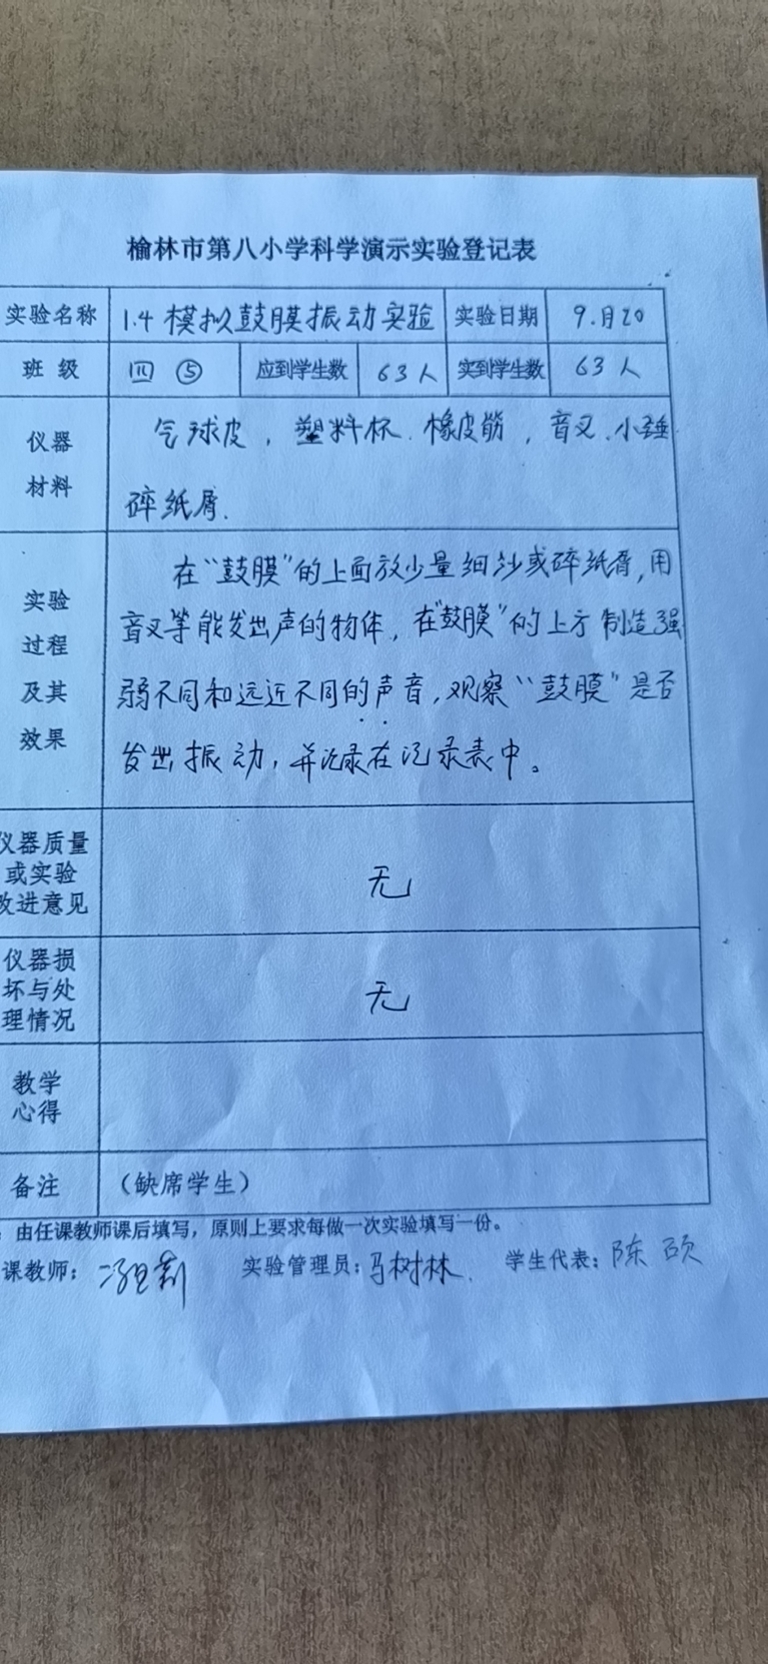 榆林市第八小学科学演示实验登记表
实验名称 1.4 模拟鼓膜振动实验 实验日期 9.月20
班 级 四 ⑤ 应到学生数 63人 实到学生数 63人
仪器
材料
气球皮，塑料杯.橡皮筋，音叉.小锤
碎纸屑.
实验
过程
及其
效果
在“鼓膜”的上面放少量细沙或碎纸屑,用
音叉等能发出声的物体，在“鼓膜”的上方制造强
弱不同和远近不同的声音,观察“鼓膜”是否
发出振动,并记录在记录表中。
仪器质量
或实验
改进意见
无
仪器损
坏与处
理情况
无
教学
心得
备注 （缺席学生）
：由任课教师课后填写，原则上要求每做一次实验填写一份。
课教师： 实验管理员：马树林. 学生代表：陈硕